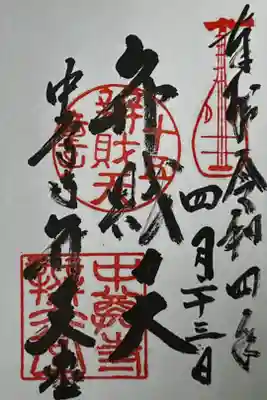 奉拝 令和四年
四月二十三日
弁財天
中尊寺弁天堂
辨財天
中尊寺